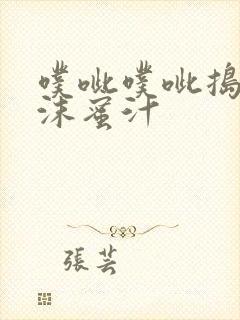 噗呲噗呲搗
沫蜜汁
張芸